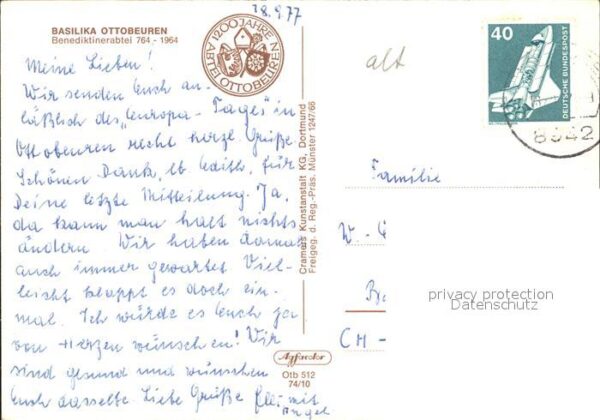 18.9.77
BASILIKA OTTOBEUREN
Benediktinerabtei 764 - 1964
1200 JAHRE ABTEI OTTOBEUREN
40
DEUTSCHE BUNDESPOST
8942
alt
Meine Lieben!
Wir senden Euch an-
läßlich des "Europa-Tages" in
Ottobeuren recht herzl Grüße.
Schönen Dank, lb Edith, für
Deine letzte Mitteilung. Ja,
da kann man halt nichts
ändern. Wir haben damals
auch immer gewartet. Viel-
leicht klappt es doch ein-
mal. Ich würde es Euch ja
von Herzen wünschen! Wir
sind gesund und wünschen
Euch dasselbe. Liebe Grüße mit
Cramers Kunstanstalt KG, Dortmund
Freigeg. d. Reg.-Präs. Münster 1247/66
Familie
W. -
CH -
privacy protection
Datenschutz
Agfacolor
Otb 512
74/10